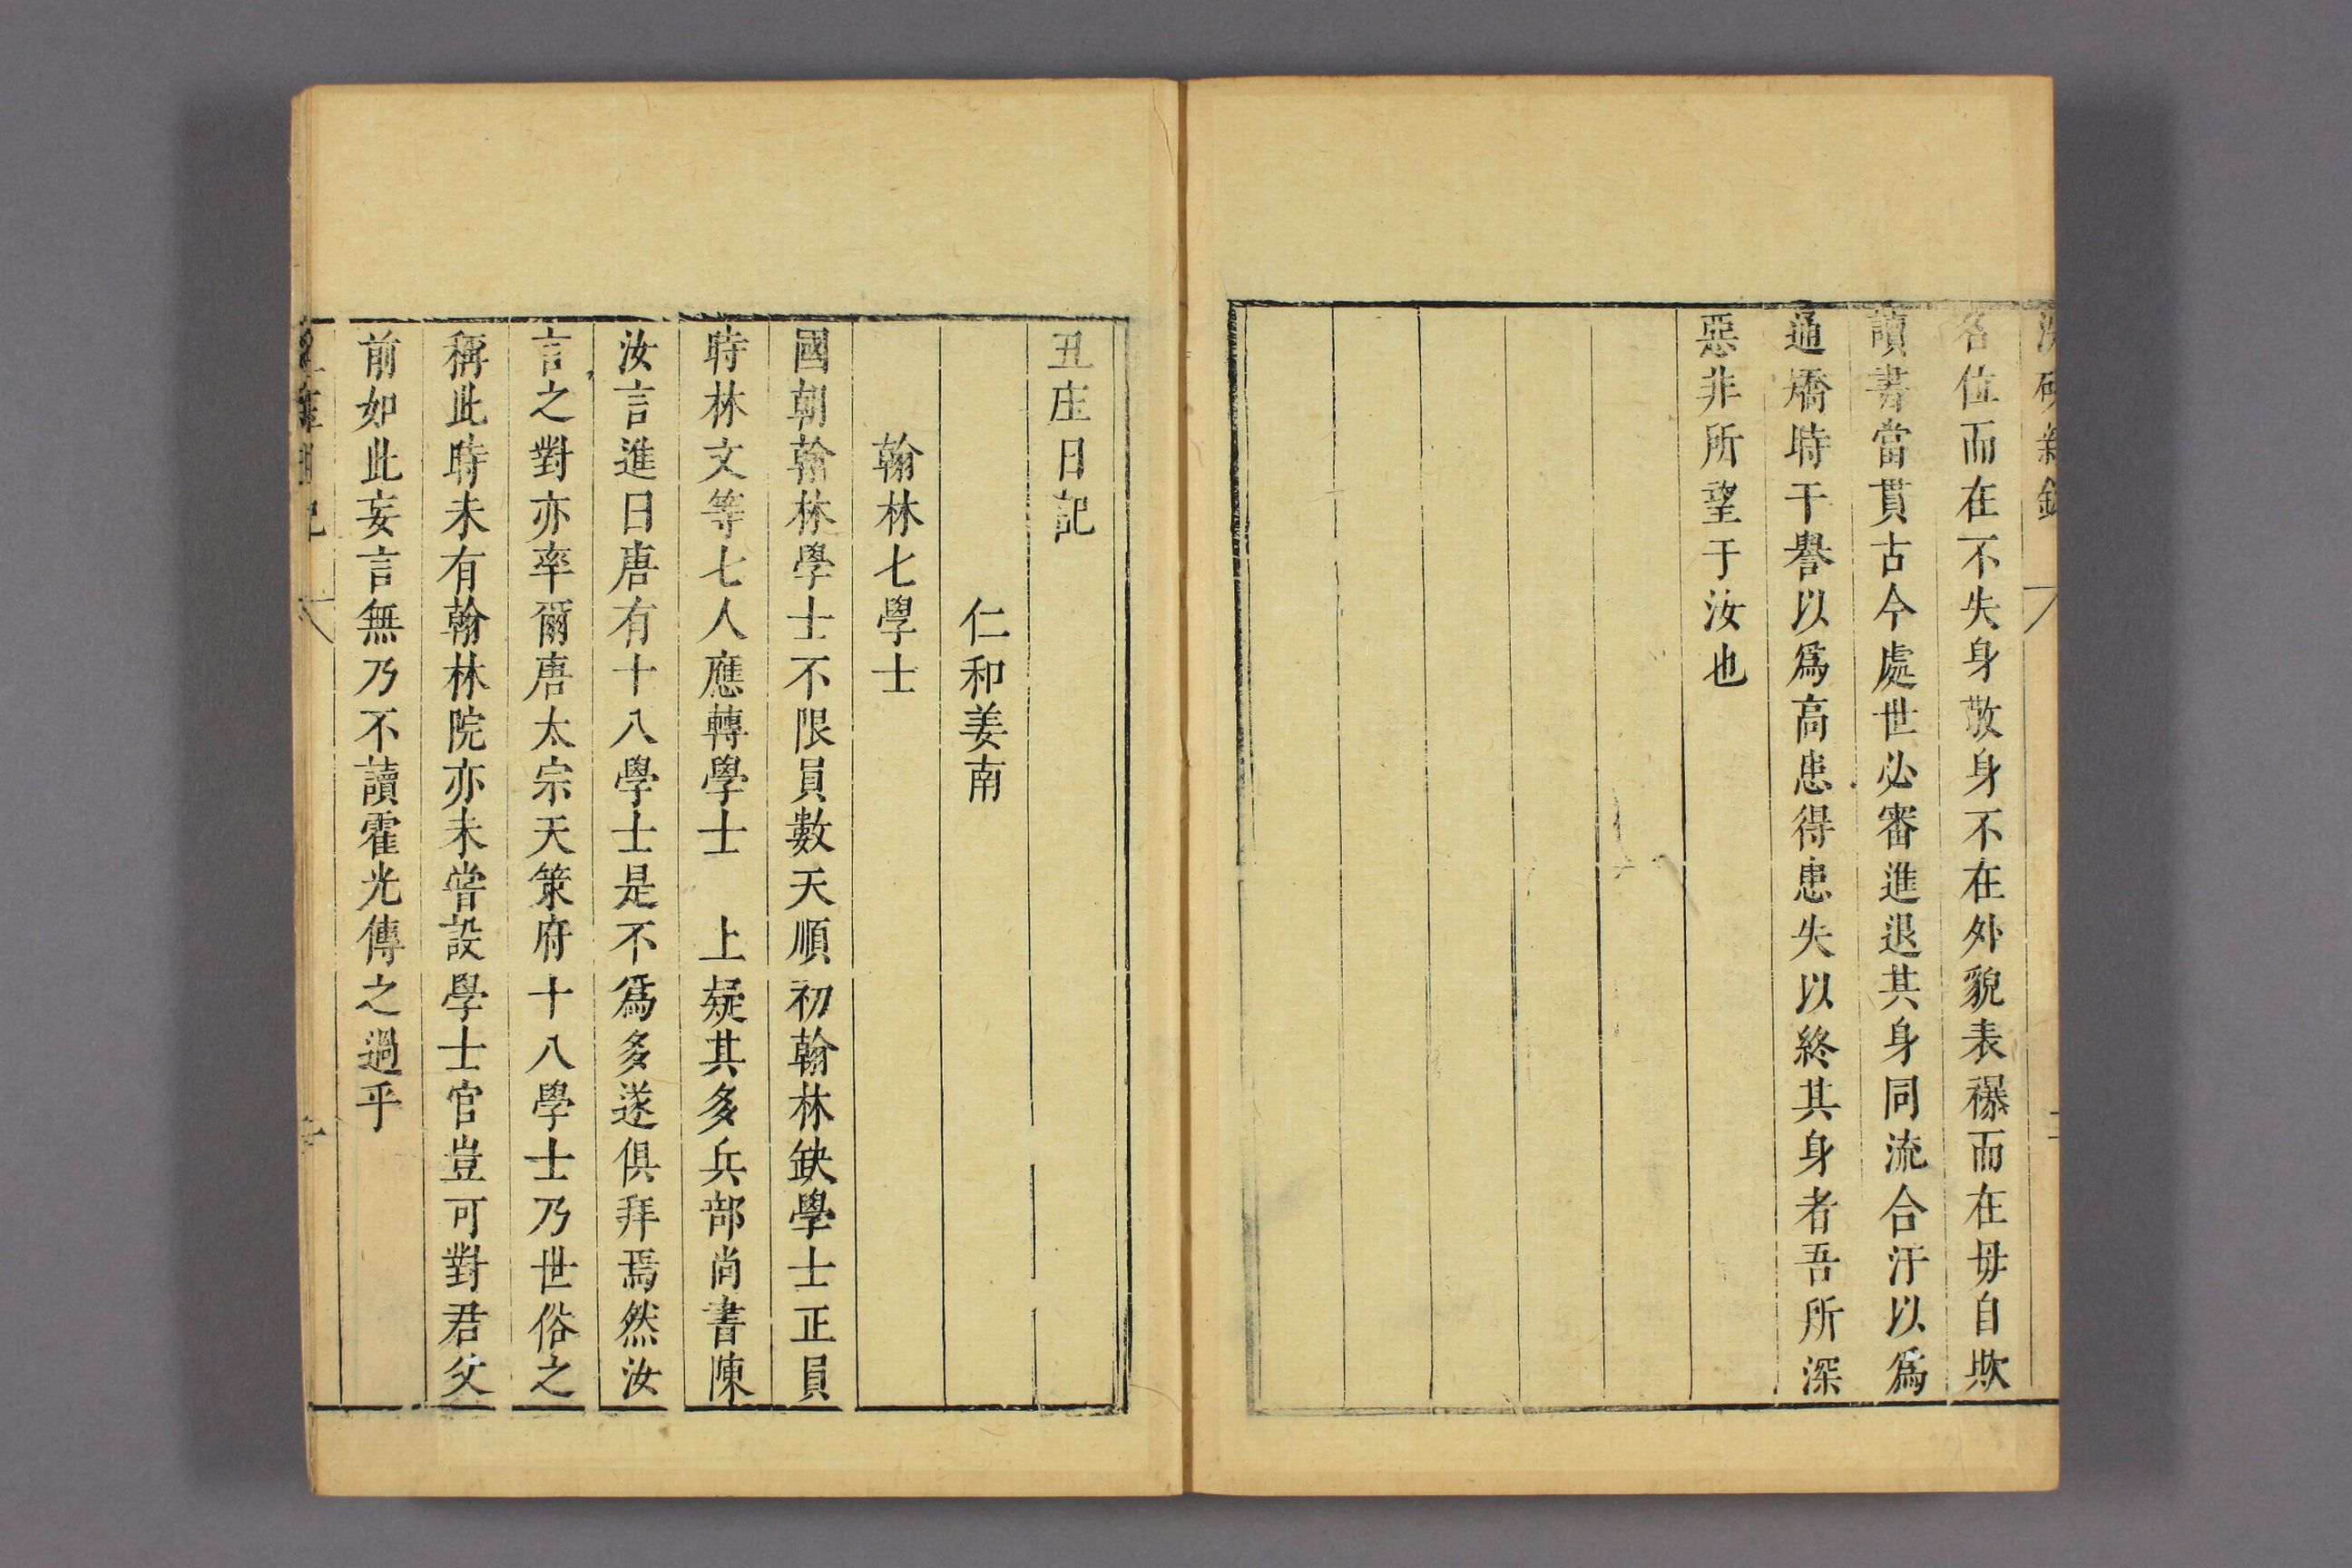 名位而在不失身敬身不在外貌表襮而在毋自欺
讀書當貫古今處世必審進退其身同流合汙以爲
通矯時干譽以爲高患得患失以終其身者吾所深
惡非所望于汝也
丑庄日記
仁和姜南
翰林七學士
國朝翰林學士不限員數天順初翰林缺學士正員
時林文等七人應轉學士 上疑其多兵部尚書陳
汝言進曰唐有十八學士是不爲多遂俱拜焉然汝
言之對亦率爾唐太宗天策府十八學士乃世俗之
稱此時未有翰林院亦未嘗設學士官豈可對君父
前如此妄言無乃不讀霍光傳之過乎